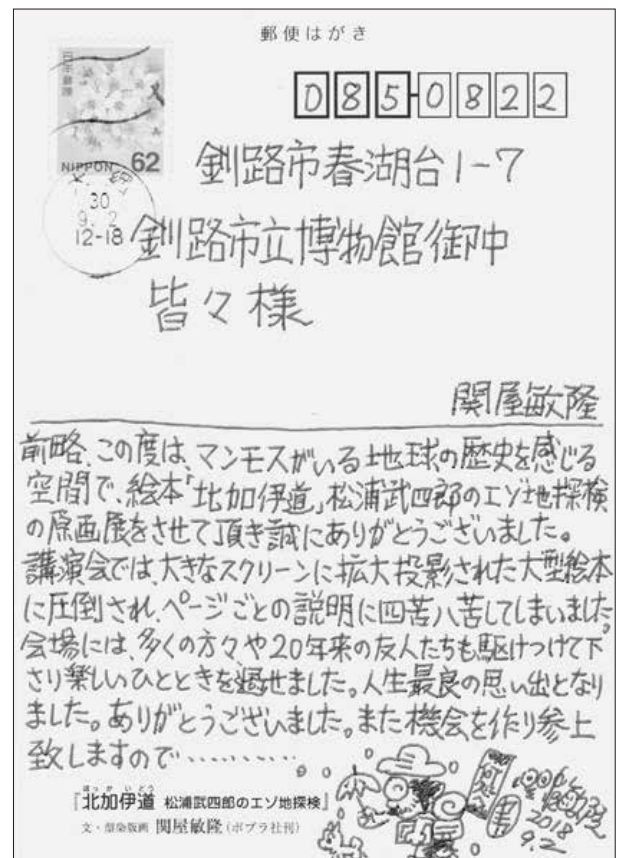 郵便はがき
日本郵便
NIPPON 62
30
9. 2
12-18
085-0822
釧路市春湖台1-7
釧路市立博物館御中
皆々様
関屋敏隆
前略、この度は、マンモスがいる地球の歴史を感じる
空間で、絵本「北加伊道」松浦武四郎のエゾ地探検
の原画展をさせて頂き誠にありがとうございました。
講演会では、大きなスクリーンに拡大投影された大型絵本
に圧倒され、ページごとの説明に四苦八苦してしまいました。
会場には、多くの方々や20年来の友人たちも駆けつけて下
さり楽しいひとときを過せました。人生最良の思い出となり
ました。ありがとうございました。また機会を作り参上
致しますので‥‥‥‥‥
ほっかいどう
『北加伊道 松浦武四郎のエゾ地探検』
文・型染版画 関屋敏隆(ポプラ社刊)
2018
9.2